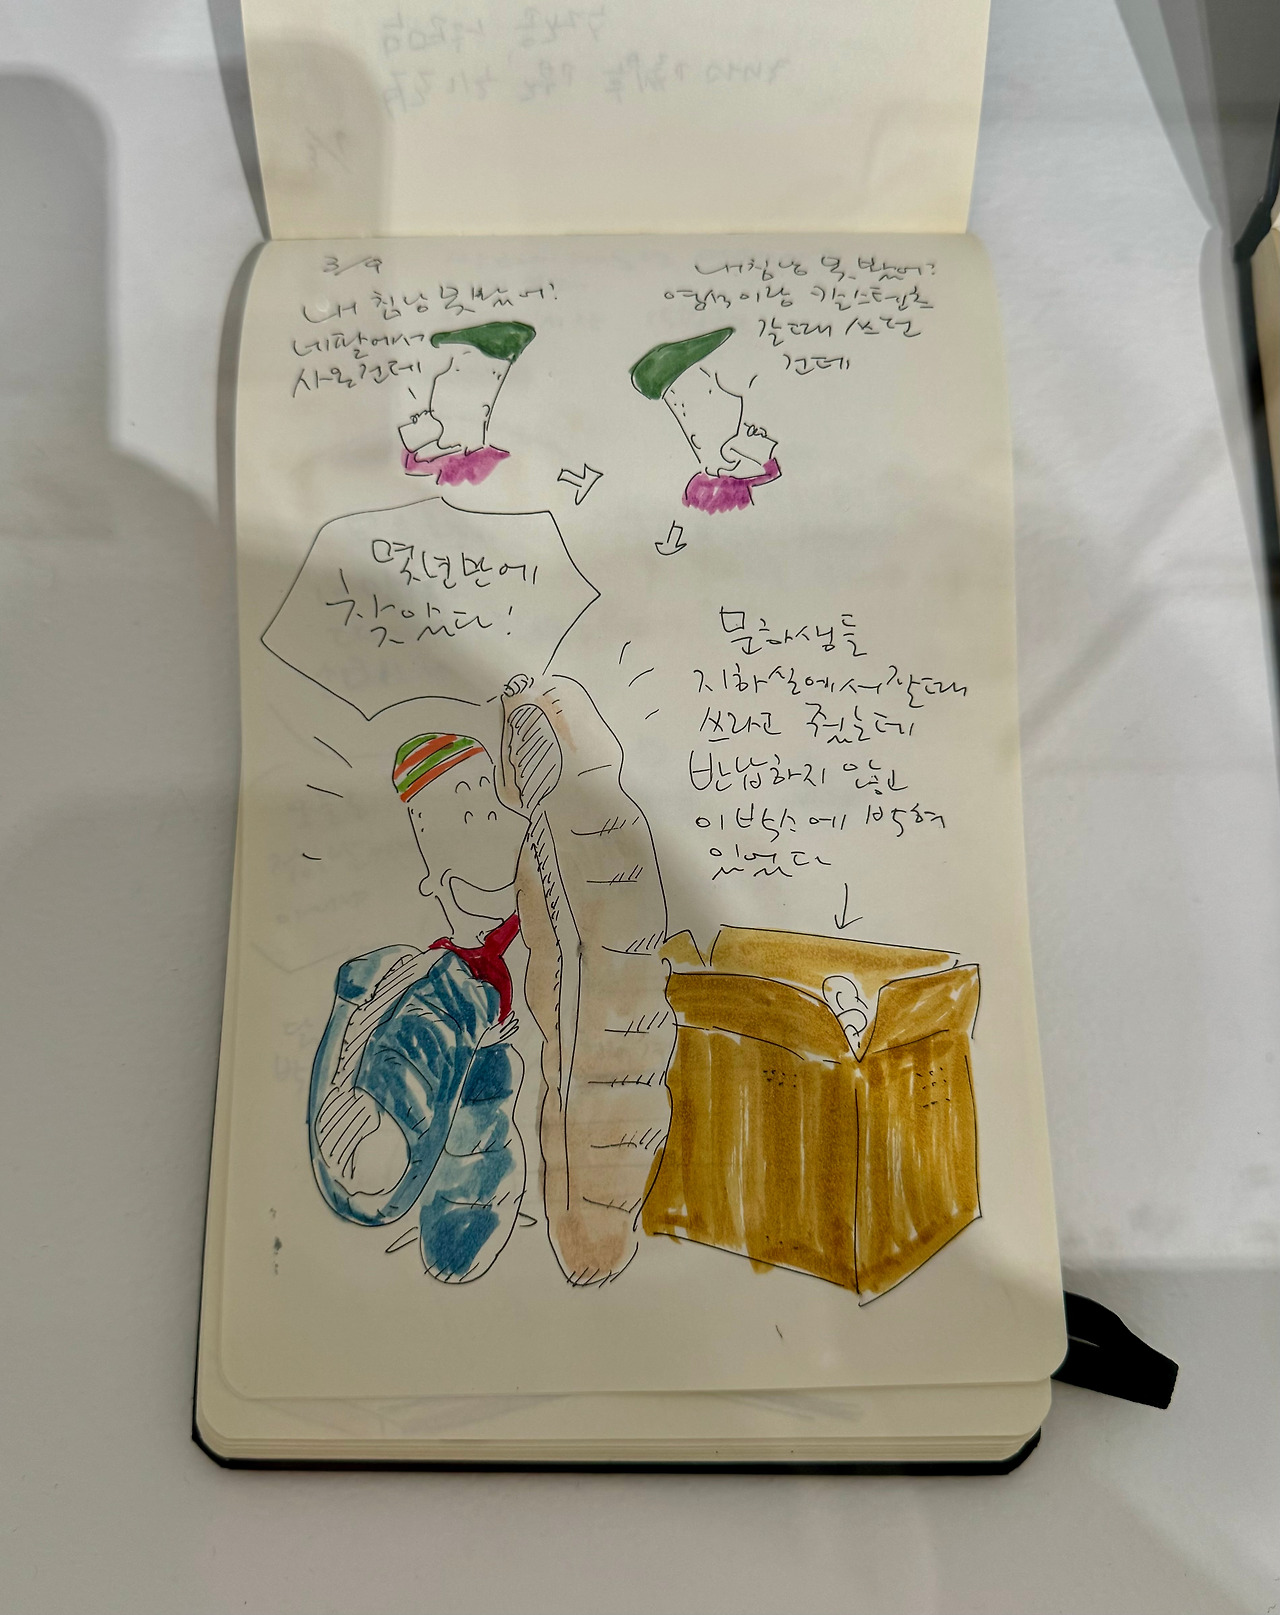 3/9
내 침낭 못봤어?
네팔에서
사온건데
내침낭 못봤어?
영석이랑 칼스텐츠
갈때 쓰던
건데
몇년만에
찾았다!
문하생들
지하실에서 잘때
쓰라고 줬는데
반납하지 않고
이 박스에 박혀
있었다